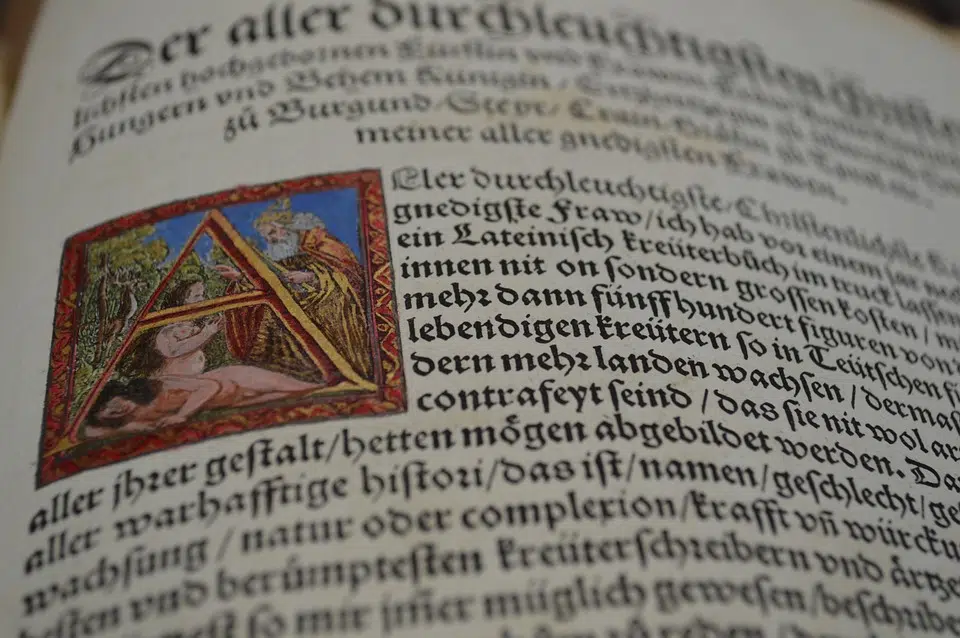 Der aller durchleuchtigsten Christe
lichsten hochgebornen Fürstin vnd Frawen
Hungern vnd Behem Künigin / Ertzhertzogin zů
zů Burgund / Steyr / Crain
meiner aller gnedigsten Frawen.
Aller durchleuchtigste / Christenlichste
gnedigste Fraw / ich hab vor einem jar
ein Lateinisch kreüterbůch im truck lassen
innen nit on sondern grossen kosten /
mehr dann fünffhundert figuren von
lebendigen kreütern so in Teütschen
dern mehr landen wachsen / dermaß
contrafeyt seind / das sie nit wol
aller jhrer gestalt / hetten mögen abgebildet werden. Da
aller warhafftige histori / das ist / namen / geschlecht / ge
wachsung / natur oder complexion / krafft vñ würcku
besten vnd berümptesten kreüterschreibern vnd ärtze
so mir jm̃er müglich gewesen / beschribe
zů reden